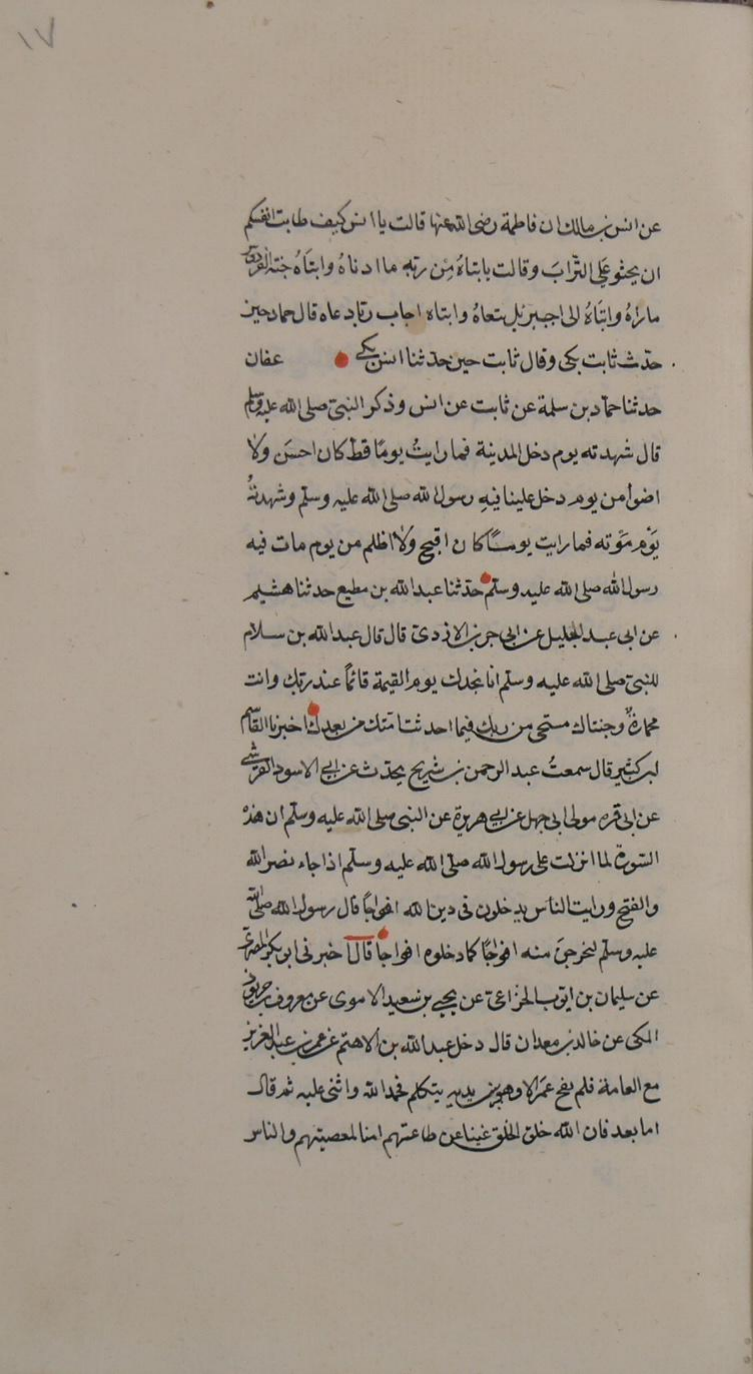 ١٧
عن انس بن مالك ان فاطمة رضى الله عنها قالت يا انس كيف طابت انفسكم
ان يحثو على التراب وقالت يا بتاهُ مِن ربّه ما ادناهُ وابتَاهُ جنة الفردوس
ماواهُ وابتَاهُ الى اجبريل ننعاهُ وابتاه اجاب ربّا دعاه قال حماد حين
حدّث ثابت بكى وقال ثابت حين حدثنا انس بكى عفان
حدثنا حمّاد بن سلمة عن ثابت عن انس وذكر النبىّ صلى الله عليه وسلم
قال شهدته يوم دخل المدينة فما رايتُ يومًا قط كان احسَن ولا
اضوأ من يوم دخل علينا فيهِ رسول الله صلى الله عليه وسلّم وشهدتهُ
يَوْم مَوته فما رايت يومًا كان اقبح ولا اظلم من يوم مات فيه
رسول الله صلى الله عليه وسلّم حدّثنا عبد الله بن مطيع حدثنا هشيم
عن ابى عبد الجليل عن ابى حريز الازدىّ قال قال عبد الله بن سلام
للنبىّ صلى الله عليه وسلّم انا نجدك يوم القيمة قائمًا عند ربّك وانت
محمارّةٌ وجنتاك مستحى من ربك فيما احدثت امّتك من بعدك اخبرنا القاسم
ابن كثير قال سمعتُ عبد الرحمن بن شريح يحدّث عن ابى الاسود القرشى
عن ابى قره مولى ابى جهل عن ابى هريرة عن النبى صلى الله عليه وسلّم ان هذه
السّورة لما انزلت على رسول الله صلى الله عليه وسلّم اذا جاء نصر الله
والفتح ورايت الناس يدخلون فى دين الله افواجًا قال رسول الله صلى الله
عليه وسلّم ليخرجنّ منه افواجًا كما دخلوه افواجًا قال اخبرنى ابو بكر المصرى
عن سليمان بن ايوب الخزاعىّ عن يحيى بن سعيد الاموى عن معروف بن خربوذ
المكى عن خالد بن معدان قال دخل عبد الله بن الاهتم على عمر بن عبد العزيز
مع العامة فلم يفج عمَر الا وهو بين يديه يتكلم فحمد الله واثنى عليه ثم قال
اما بعد فان الله خلق الخلق غنيا عن طاعتهم امنا لمعصيتهم والناس